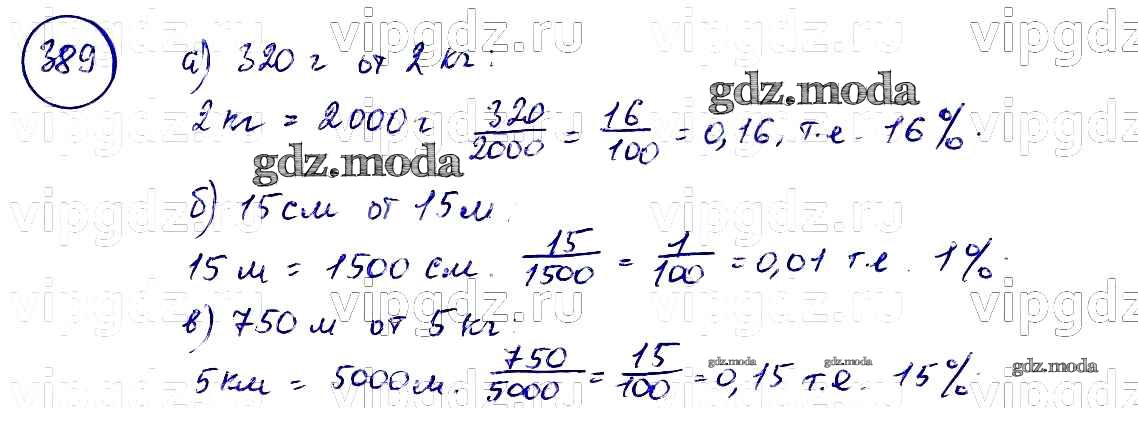 vipgdz.ru vipgdz.ru vipgdz.ru vipgdz.ru
389 а) 320 г от 2 кг:
gdz.moda
2 кг = 2000 г 320/2000 = 16/100 = 0,16, т.е. 16%.
vipgdz.ru vipgdz.ru vipgdz.ru vipgdz.ru
gdz.moda
б) 15 см от 15 м.
vipgdz.ru vipgdz.ru vipgdz.ru vipgdz.ru
15 м = 1500 см. 15/1500 = 1/100 = 0,01 т.е. 1%.
vipgdz.ru vipgdz.ru vipgdz.ru vipgdz.ru
в) 750 м от 5 кг:
5 км = 5000 м. 750/5000 = 15/100 = 0,15 т.е. 15%.
gdz.moda gdz.moda gdz.moda
vipgdz.ru vipgdz.ru vipgdz.ru vipgdz.ru